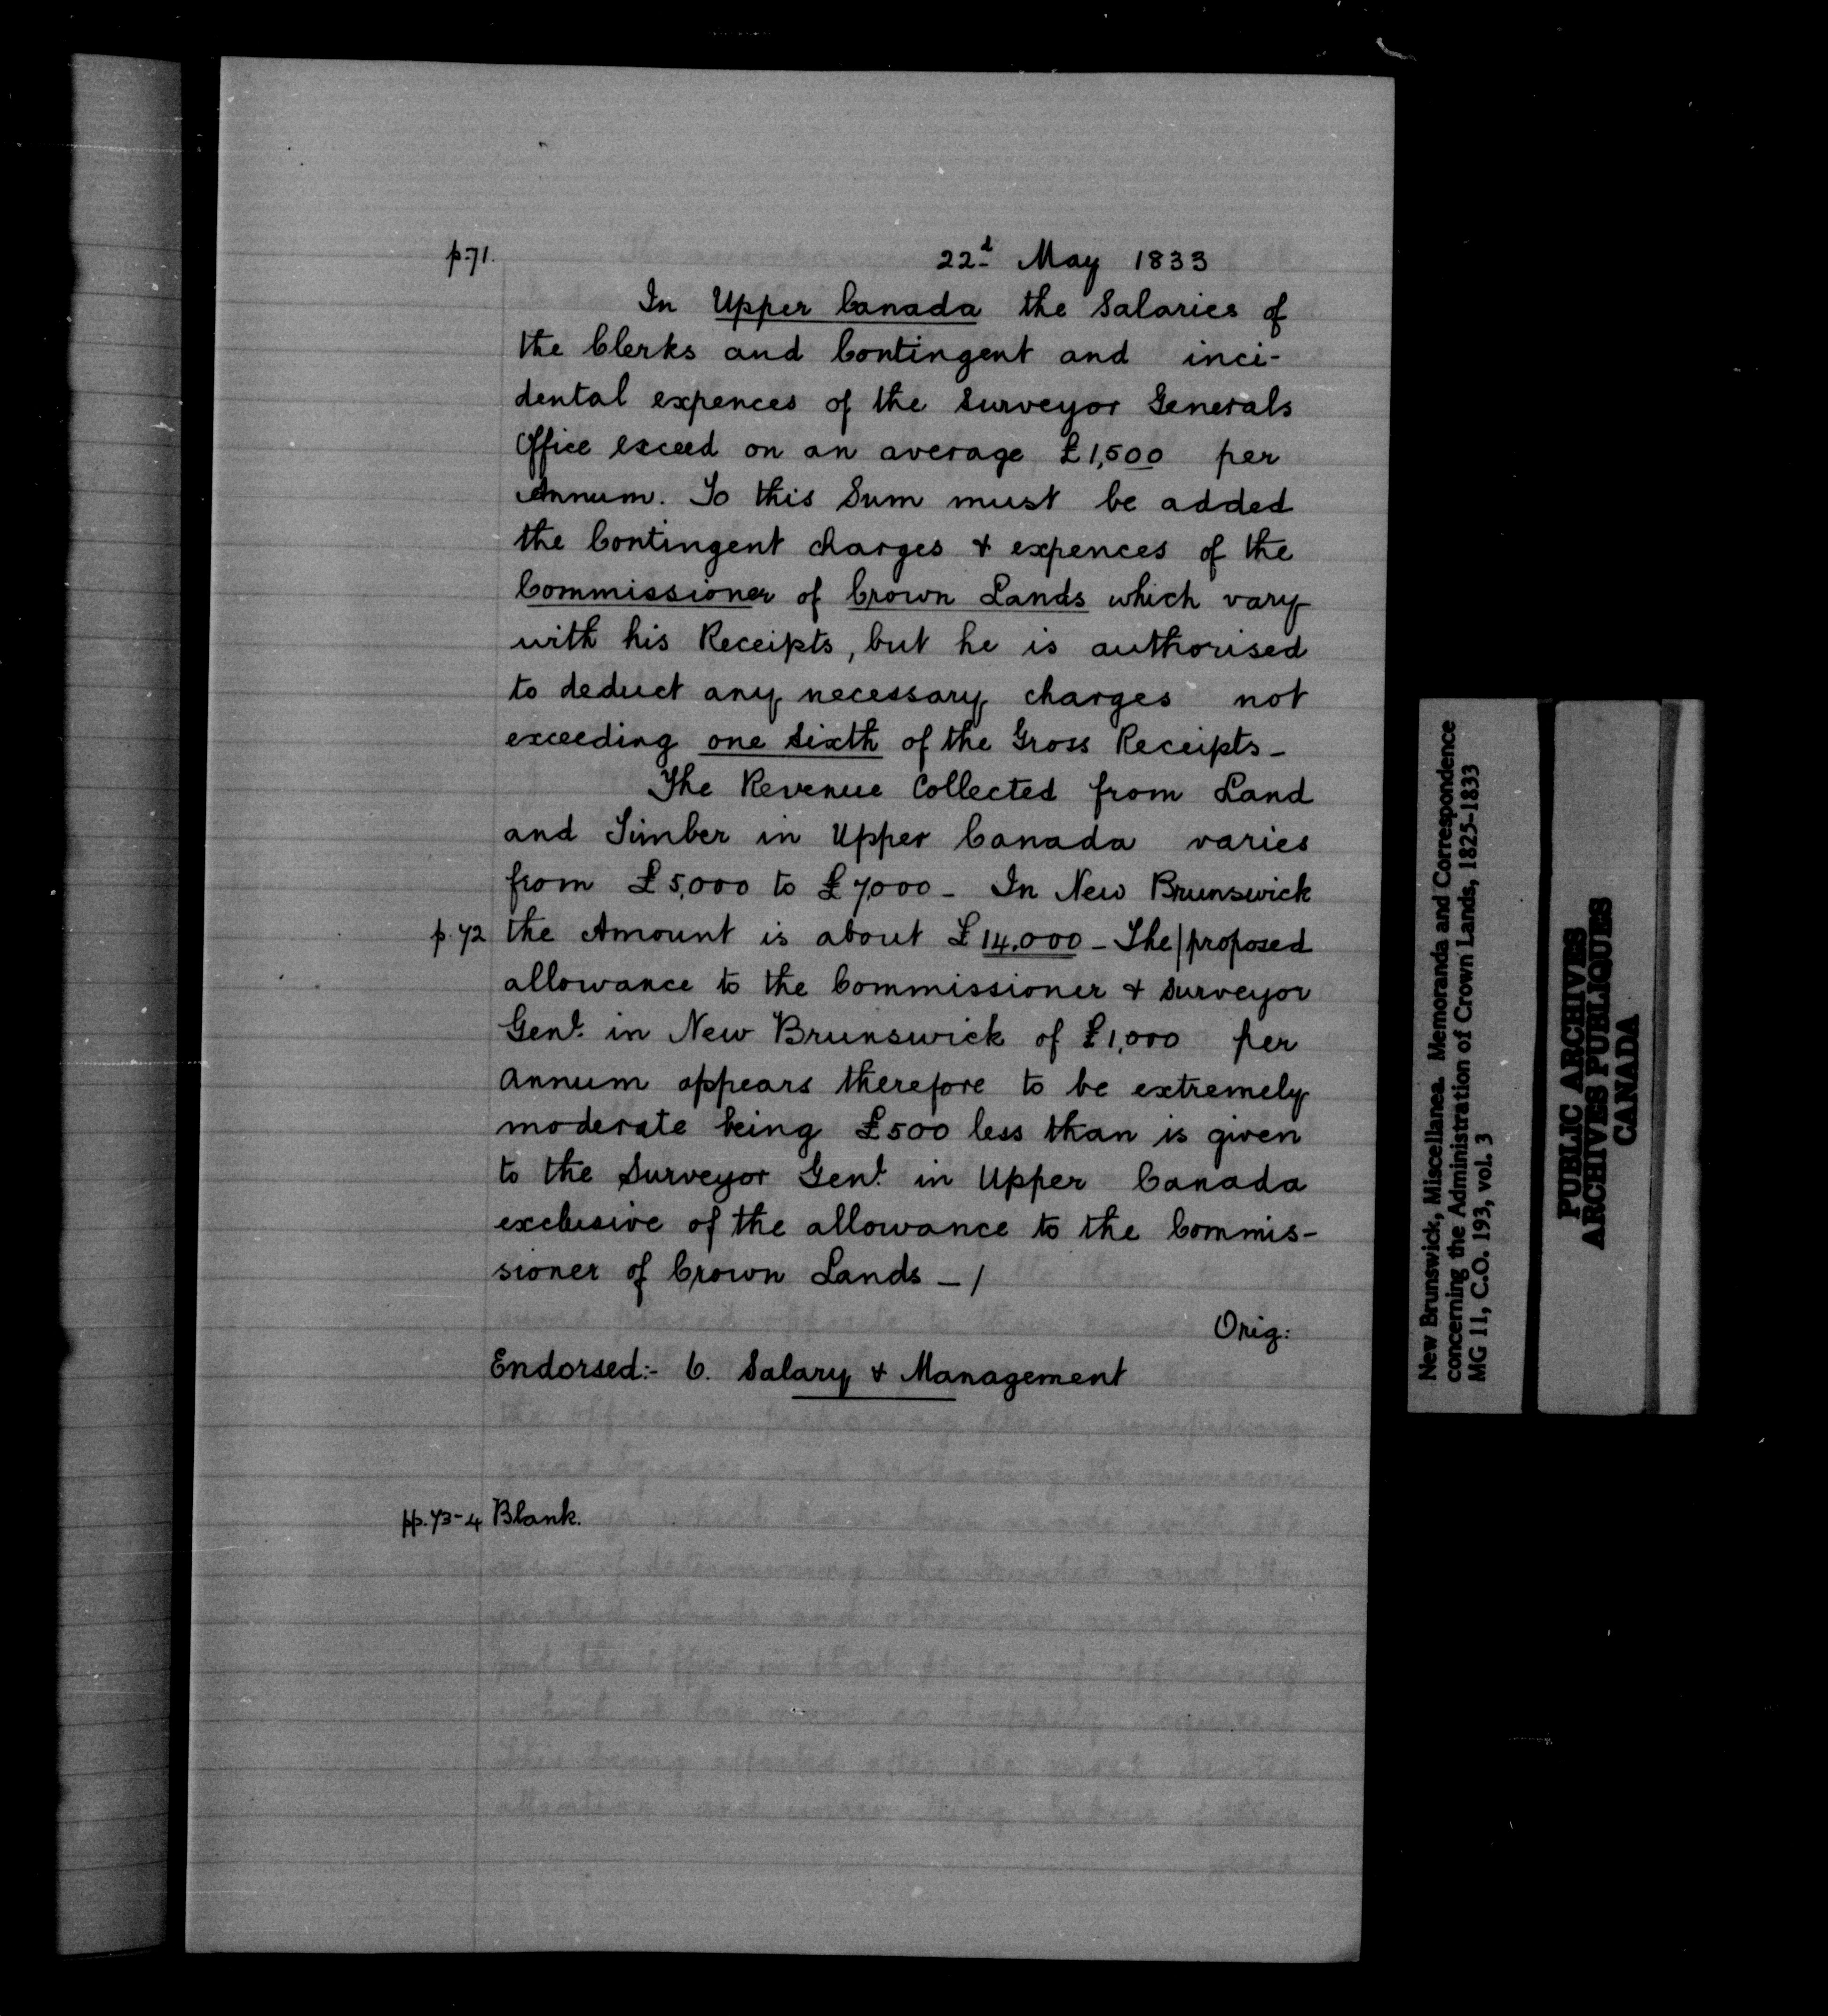 p. 71.
22d May 1833
In Upper Canada the Salaries of
the Clerks and Contingent and inci-
dental expences of the Surveyor Generals
Office exceed on an average £1,500 per
Annum. To this Sum must be added
the Contingent charges & expences of the
Commissioner of Crown Lands which vary
with his Receipts, but he is authorised
to deduct any necessary charges not
exceeding one sixth of the Gross Receipts -
The Revenue Collected from Land
and Timber in Upper Canada varies
from £5,000 to £7,000 - In New Brunswick
p. 72 the Amount is about £14,000 - The/proposed
allowance to the Commissioner & Surveyor
Genl. in New Brunswick of £1,000 per
annum appears therefore to be extremely
moderate being £500 less than is given
to the Surveyor Genl. in Upper Canada
exclusive of the allowance to the Commis-
sioner of Crown Lands - /
Orig:
Endorsed:- 6. Salary & Management
pp. 73-4 Blank.
New Brunswick, Miscellanea. Memoranda and Correspondence
concerning the Administration of Crown Lands, 1825-1833
MG 11, C.O. 193, vol. 3
PUBLIC ARCHIVES
ARCHIVES PUBLIQUES
CANADA